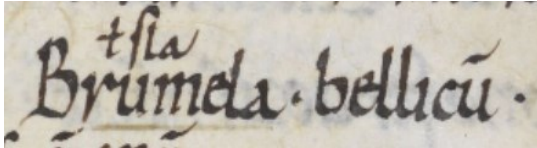 ł sla
Brumela · bellicū ·